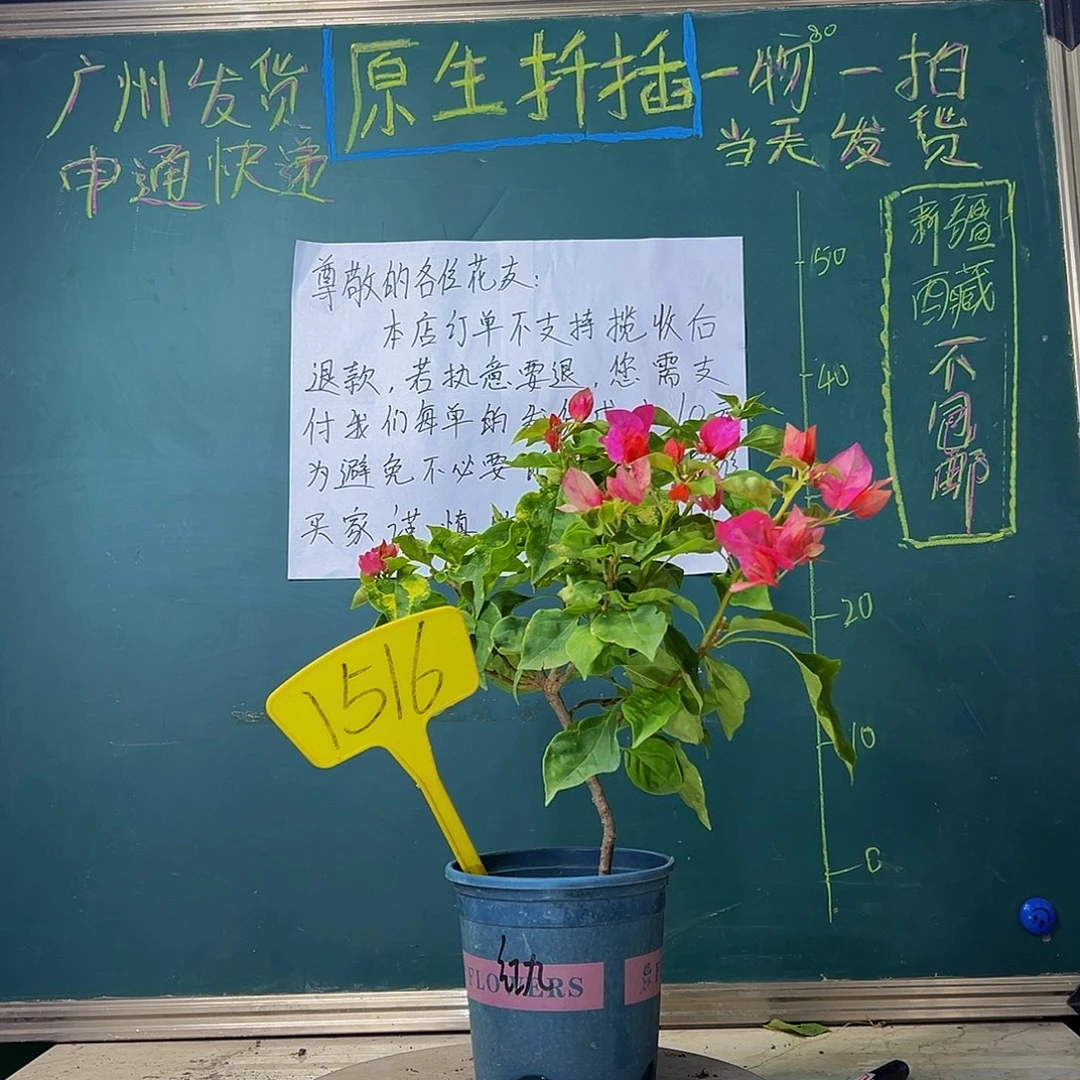 广州发货
申通快递
原生扦插
一物一拍
80
当天发货
新疆
西藏
不包邮
50
40
20
10
0
尊敬的各位花友：
本店订单不支持揽收后
退款，若执意要退，您需支
付我们每单的
为避免不必要
买家谨慎
1516
红九
FLOWERS